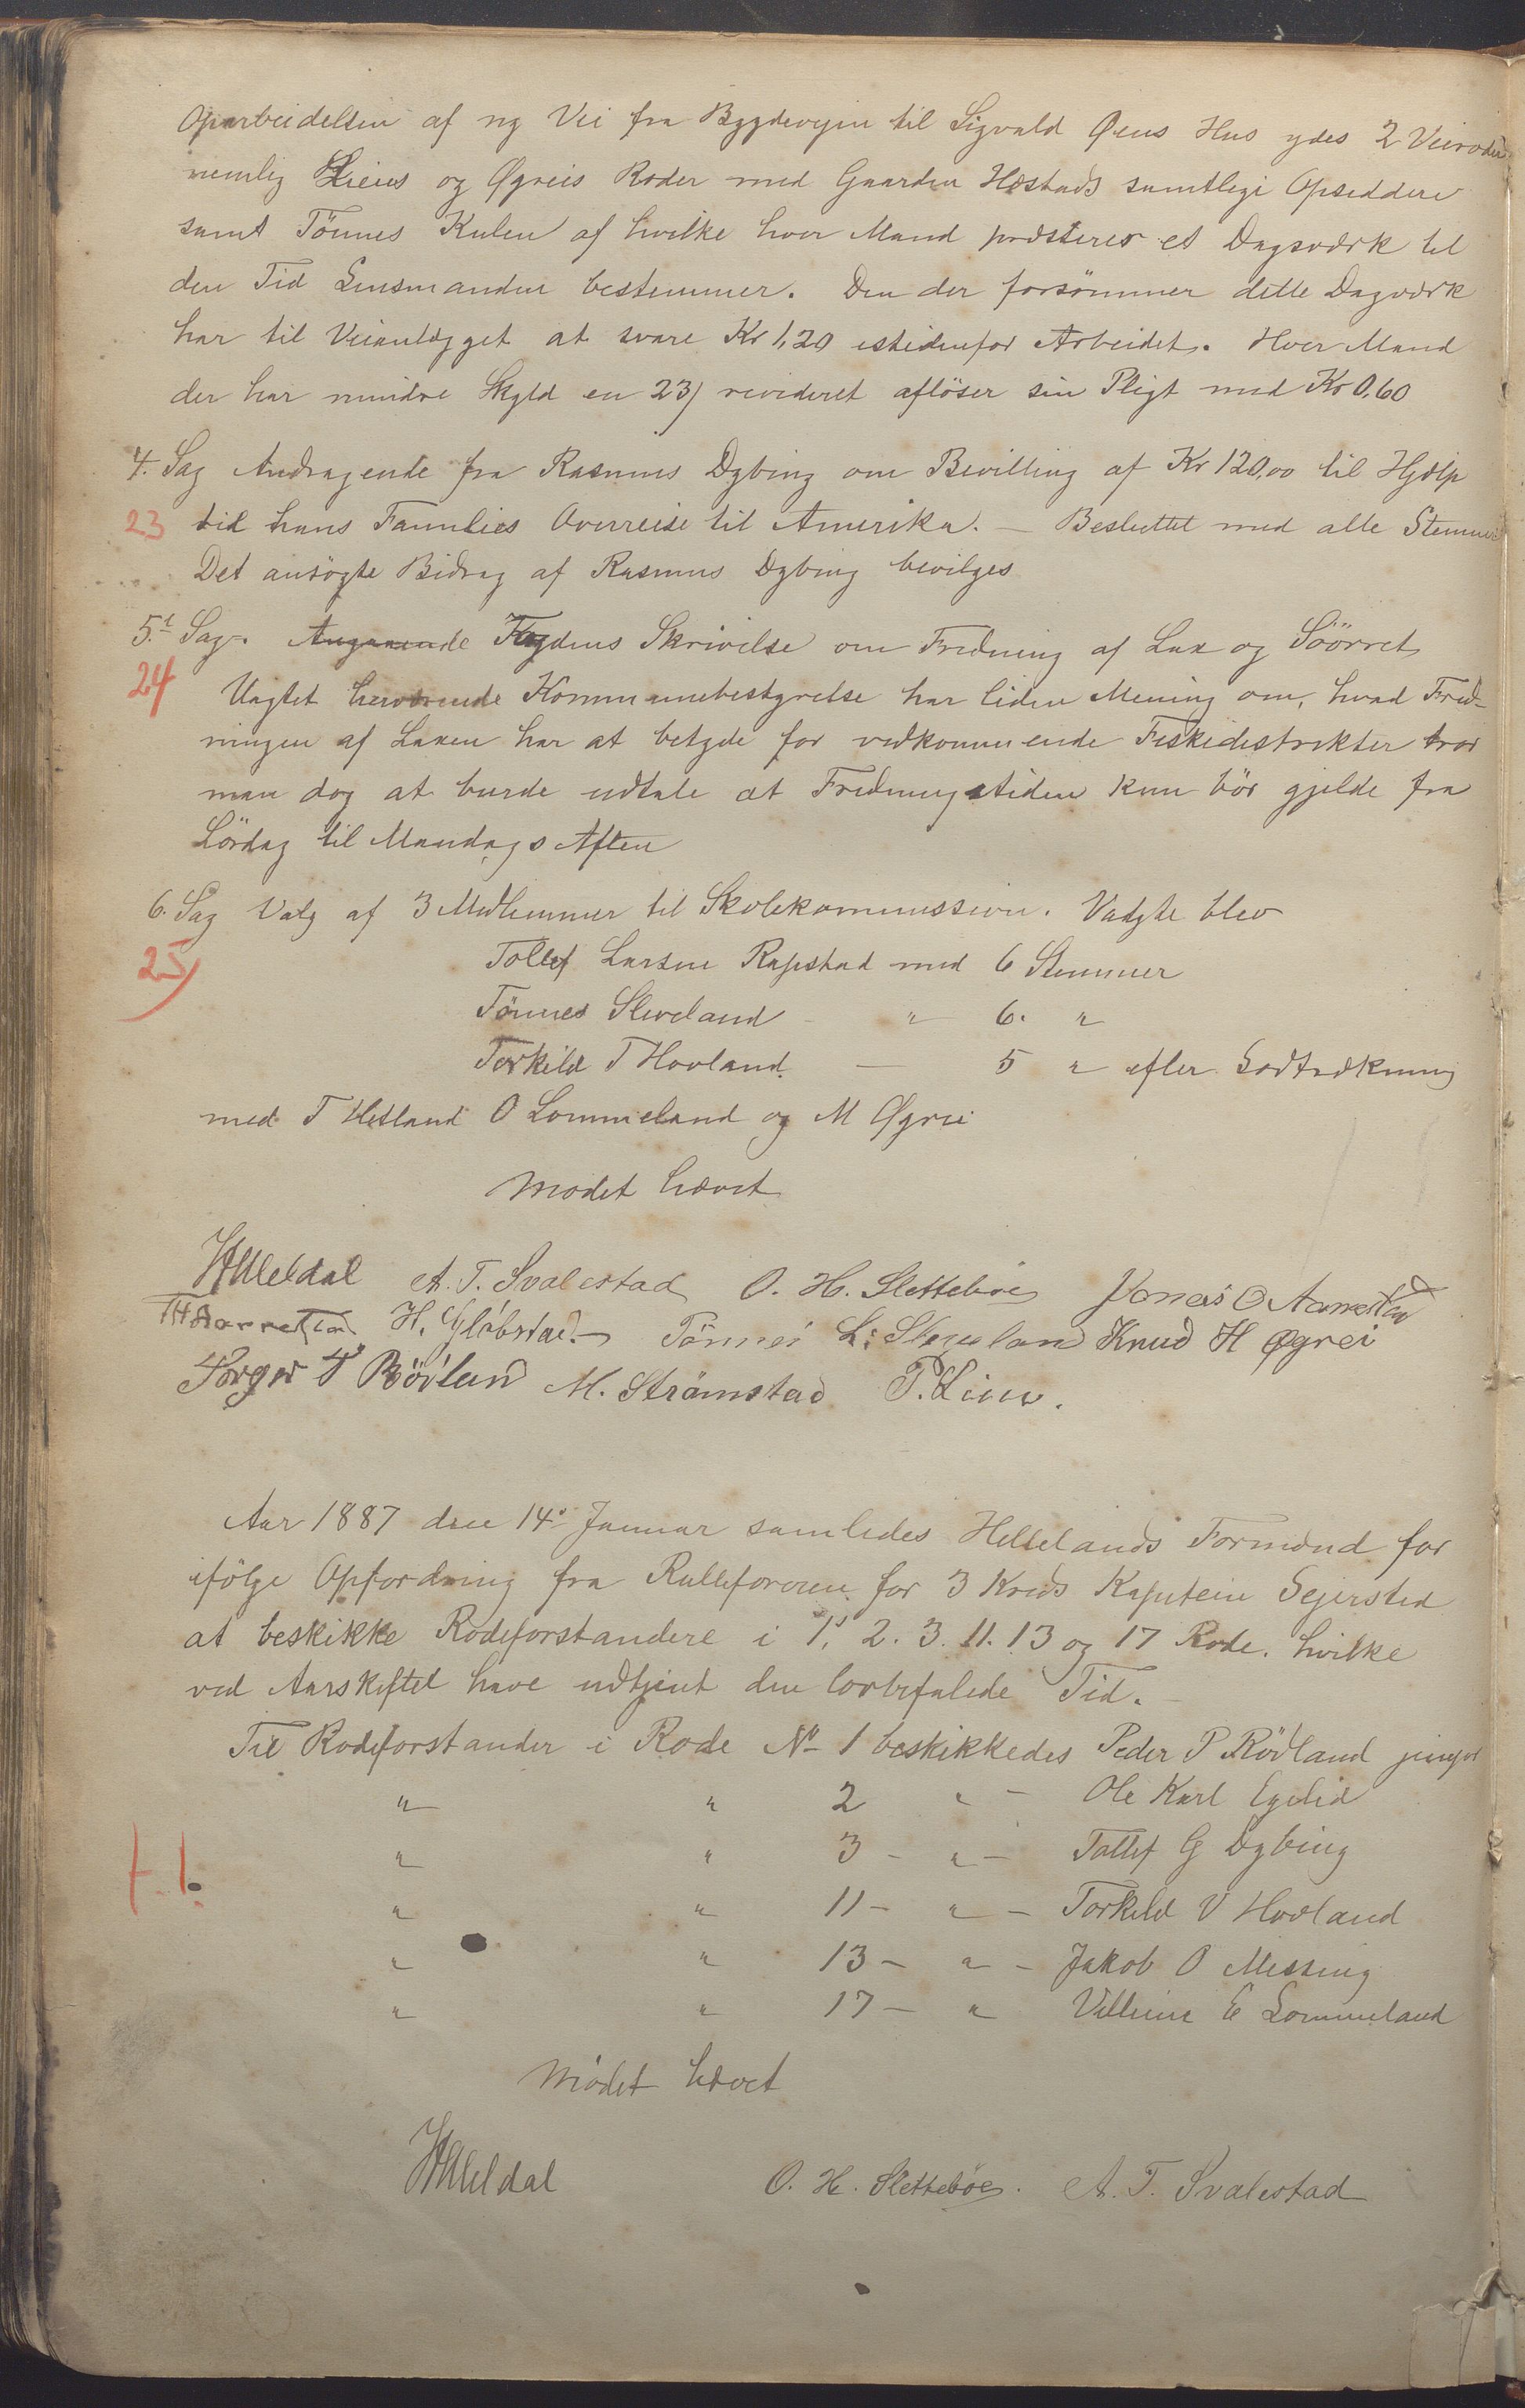 Oparbeidelsen af ny Vei fra Bygdeveien til Sigvald Øens Hus ydes 2 Veiroder
nemlig Liens og Øgreis Roder med Gaarden Hæstads samtlige Opsiddere
samt Tönnes Kulen af hvilke hver Mand præsterer et Dagsværk til
den Tid Lensmanden bestemmer. Den der forsömmer dette Dagværk
har til Veianlægget at svare Kr 1,20 istedenfor Arbeidet. Hver Mand
der har mindre Skyld en 23/ revideret aflöser sin Pligt med Kr 0,60
4. Sag Andragende fra Rasmus Dybing om Bevilling af Kr 120,00 til Hjælp
23 til hans Families Overreise til Amerika. — Besluttet med alle Stemmer
Det ansögte Bidrag af Rasmus Dybing bevilges
5. Sag. Angaaende Fogdens Skrivelse om Fredning af Lax og Söörret
24 Uagtet herværende Kommunebestyrelse har liden Mening om, hvad Fred-
ningen af Laxen har at betyde for vedkommende Fiskedistrikter tror
man dog at burde udtale at Fredningstiden kun bör gjelde fra
Lördag til Mandags Aften
6. Sag Valg af 3 Medlemmer til Skolekommission. Valgte blev
25/ Tollef Larsen Rapstad med 6 Stemmer
Tönnes Sleveland " 6. "
Torkild T Hovland — 5 " efter Lodtrækning
med T Hetland O Lommeland og M Øgrei
Mødet hævet
HMeldal A. T. Svalestad O. H. Slettebøe Jonas O Aarrestad
TH Aarrestad H. Gløbstad Tönnes L. Sleveland Knud H Øgrei
Torger T Rödland M. Strömstad P. Lien.
Aar 1887 den 14. Januar samledes Hellelands Formænd for
ifölge Opfordring fra Rulleföreren for 3 Kreds Kaptein Sejersted
at beskikke Rodeforstandere i 1, 2. 3. 11. 13 og 17 Rode. hvilke
ved Aarskiftet have udtjent den lovbefalede Tid. —
Til Rodeforstander i Rode No 1 beskikkedes Peder P Rödland junjor
" " 2 " — Ole Karl Egelid
" " 3 — " — Tollef G Dybing
1.
" " 11 — " — Torkild V Hovland
" " 13 — " — Jakob O Messing
" " 17 — " Villum E Lommeland
Mødet hævet
HMeldal O. H. Slettebøe. A. T. Svalestad